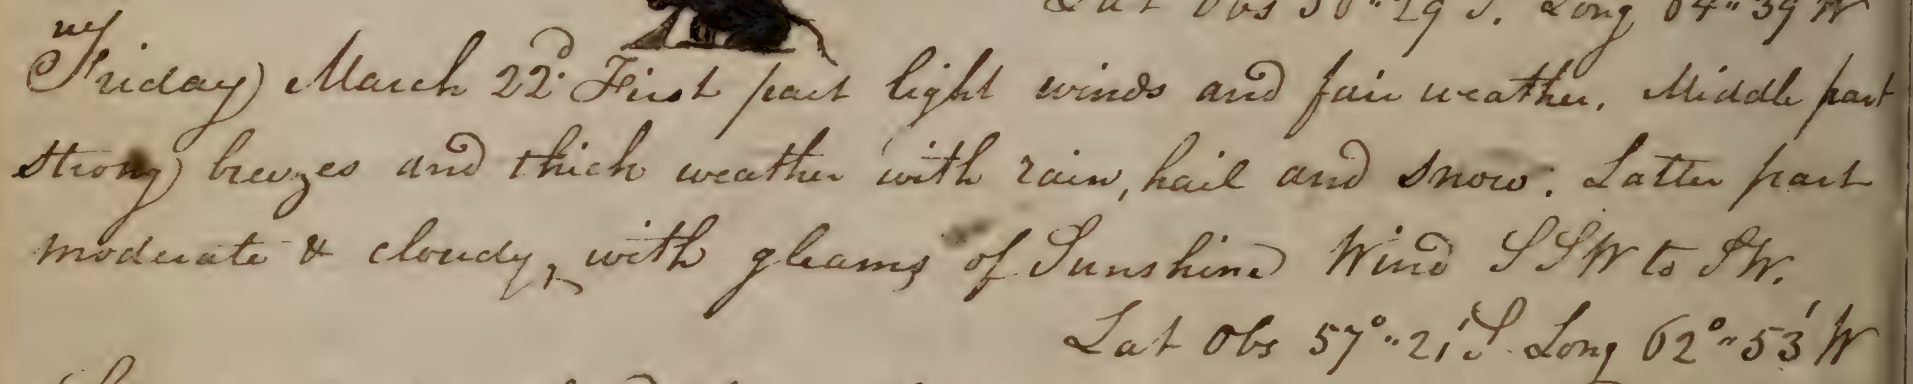 Lat Obs 56" 29 S. Long 64" 39 W
Friday March 22d First part light winds and fair weather. Middle part
strong breezes and thick weather with rain, hail and snow. Latter part
moderate & cloudy, with gleams of Sunshine Wind SSW to SW.
Lat Obs 57°" 21' S. Long 62°" 53' W